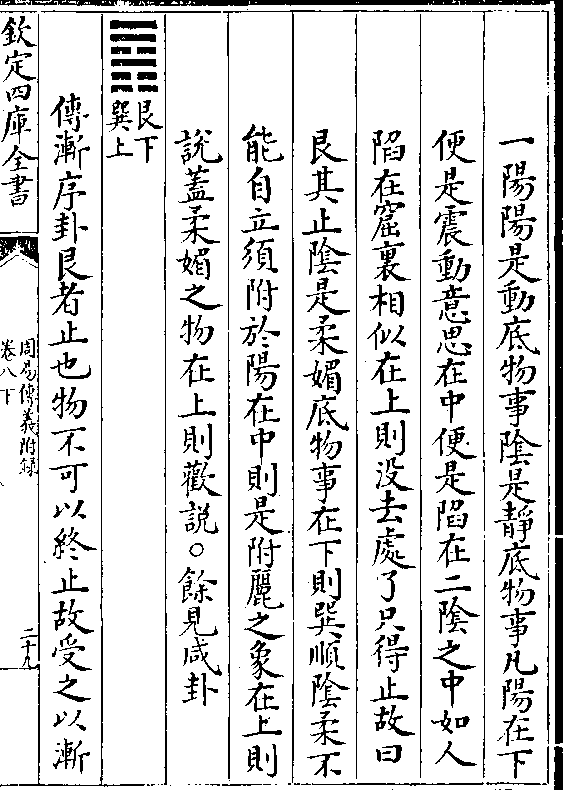 一陽陽是動底物事陰是靜底物事凡陽在下
便是震動意思在中便是陷在二陰之中如人
陷在窟裏相似在上則没去處了只得止故曰
艮其止陰是柔媚底物事在下則巽順陰柔不
能自立須附於陽在中則是附麗之象在上則
說蓋柔媚之物在上則歡說○餘見咸卦
䷴艮下
巽上
傳漸序卦艮者止也物不可以終止故受之以漸
欽定四庫全書
周易傳義附録
卷八下
二十九